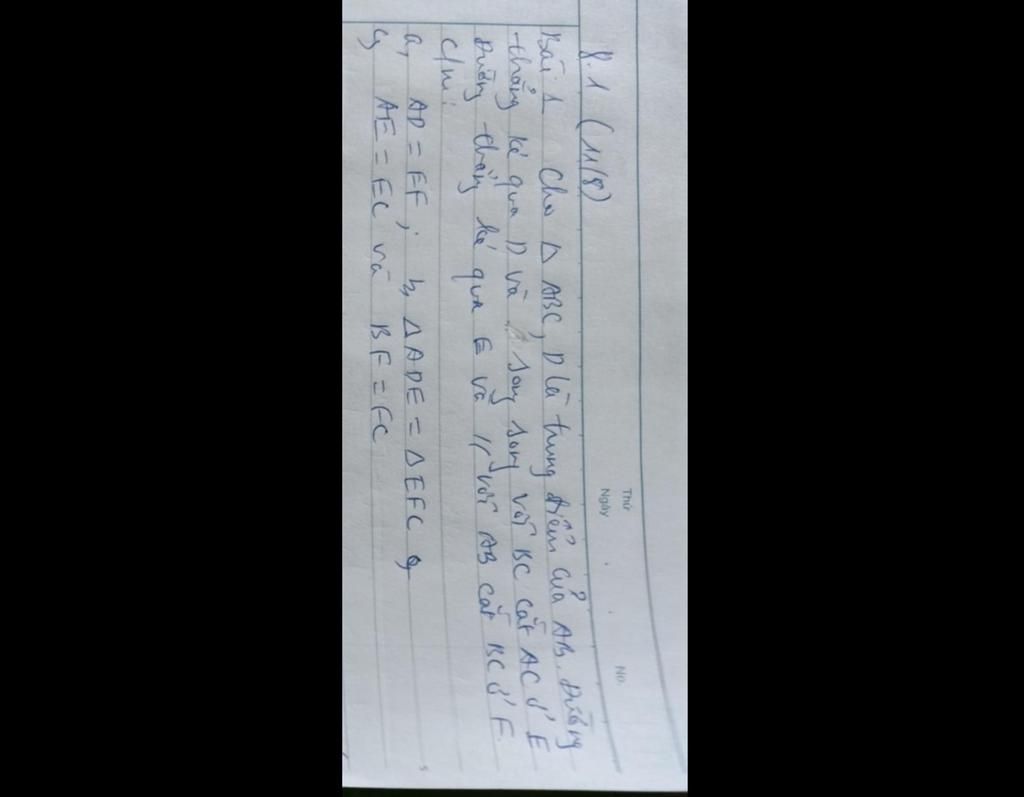 Thứ
Ngày
No.
8.1 (11/8)
Bài 1 Cho Δ ABC, D là trung điểm của AB. Đường
thẳng kẻ qua D và song song với BC cắt AC ở E
Đường thẳng kẻ qua E và // với AB cắt BC ở F.
C/m:
a, AD = EF; b, Δ ADE = Δ EFC
c, AE = EC và BF = FC